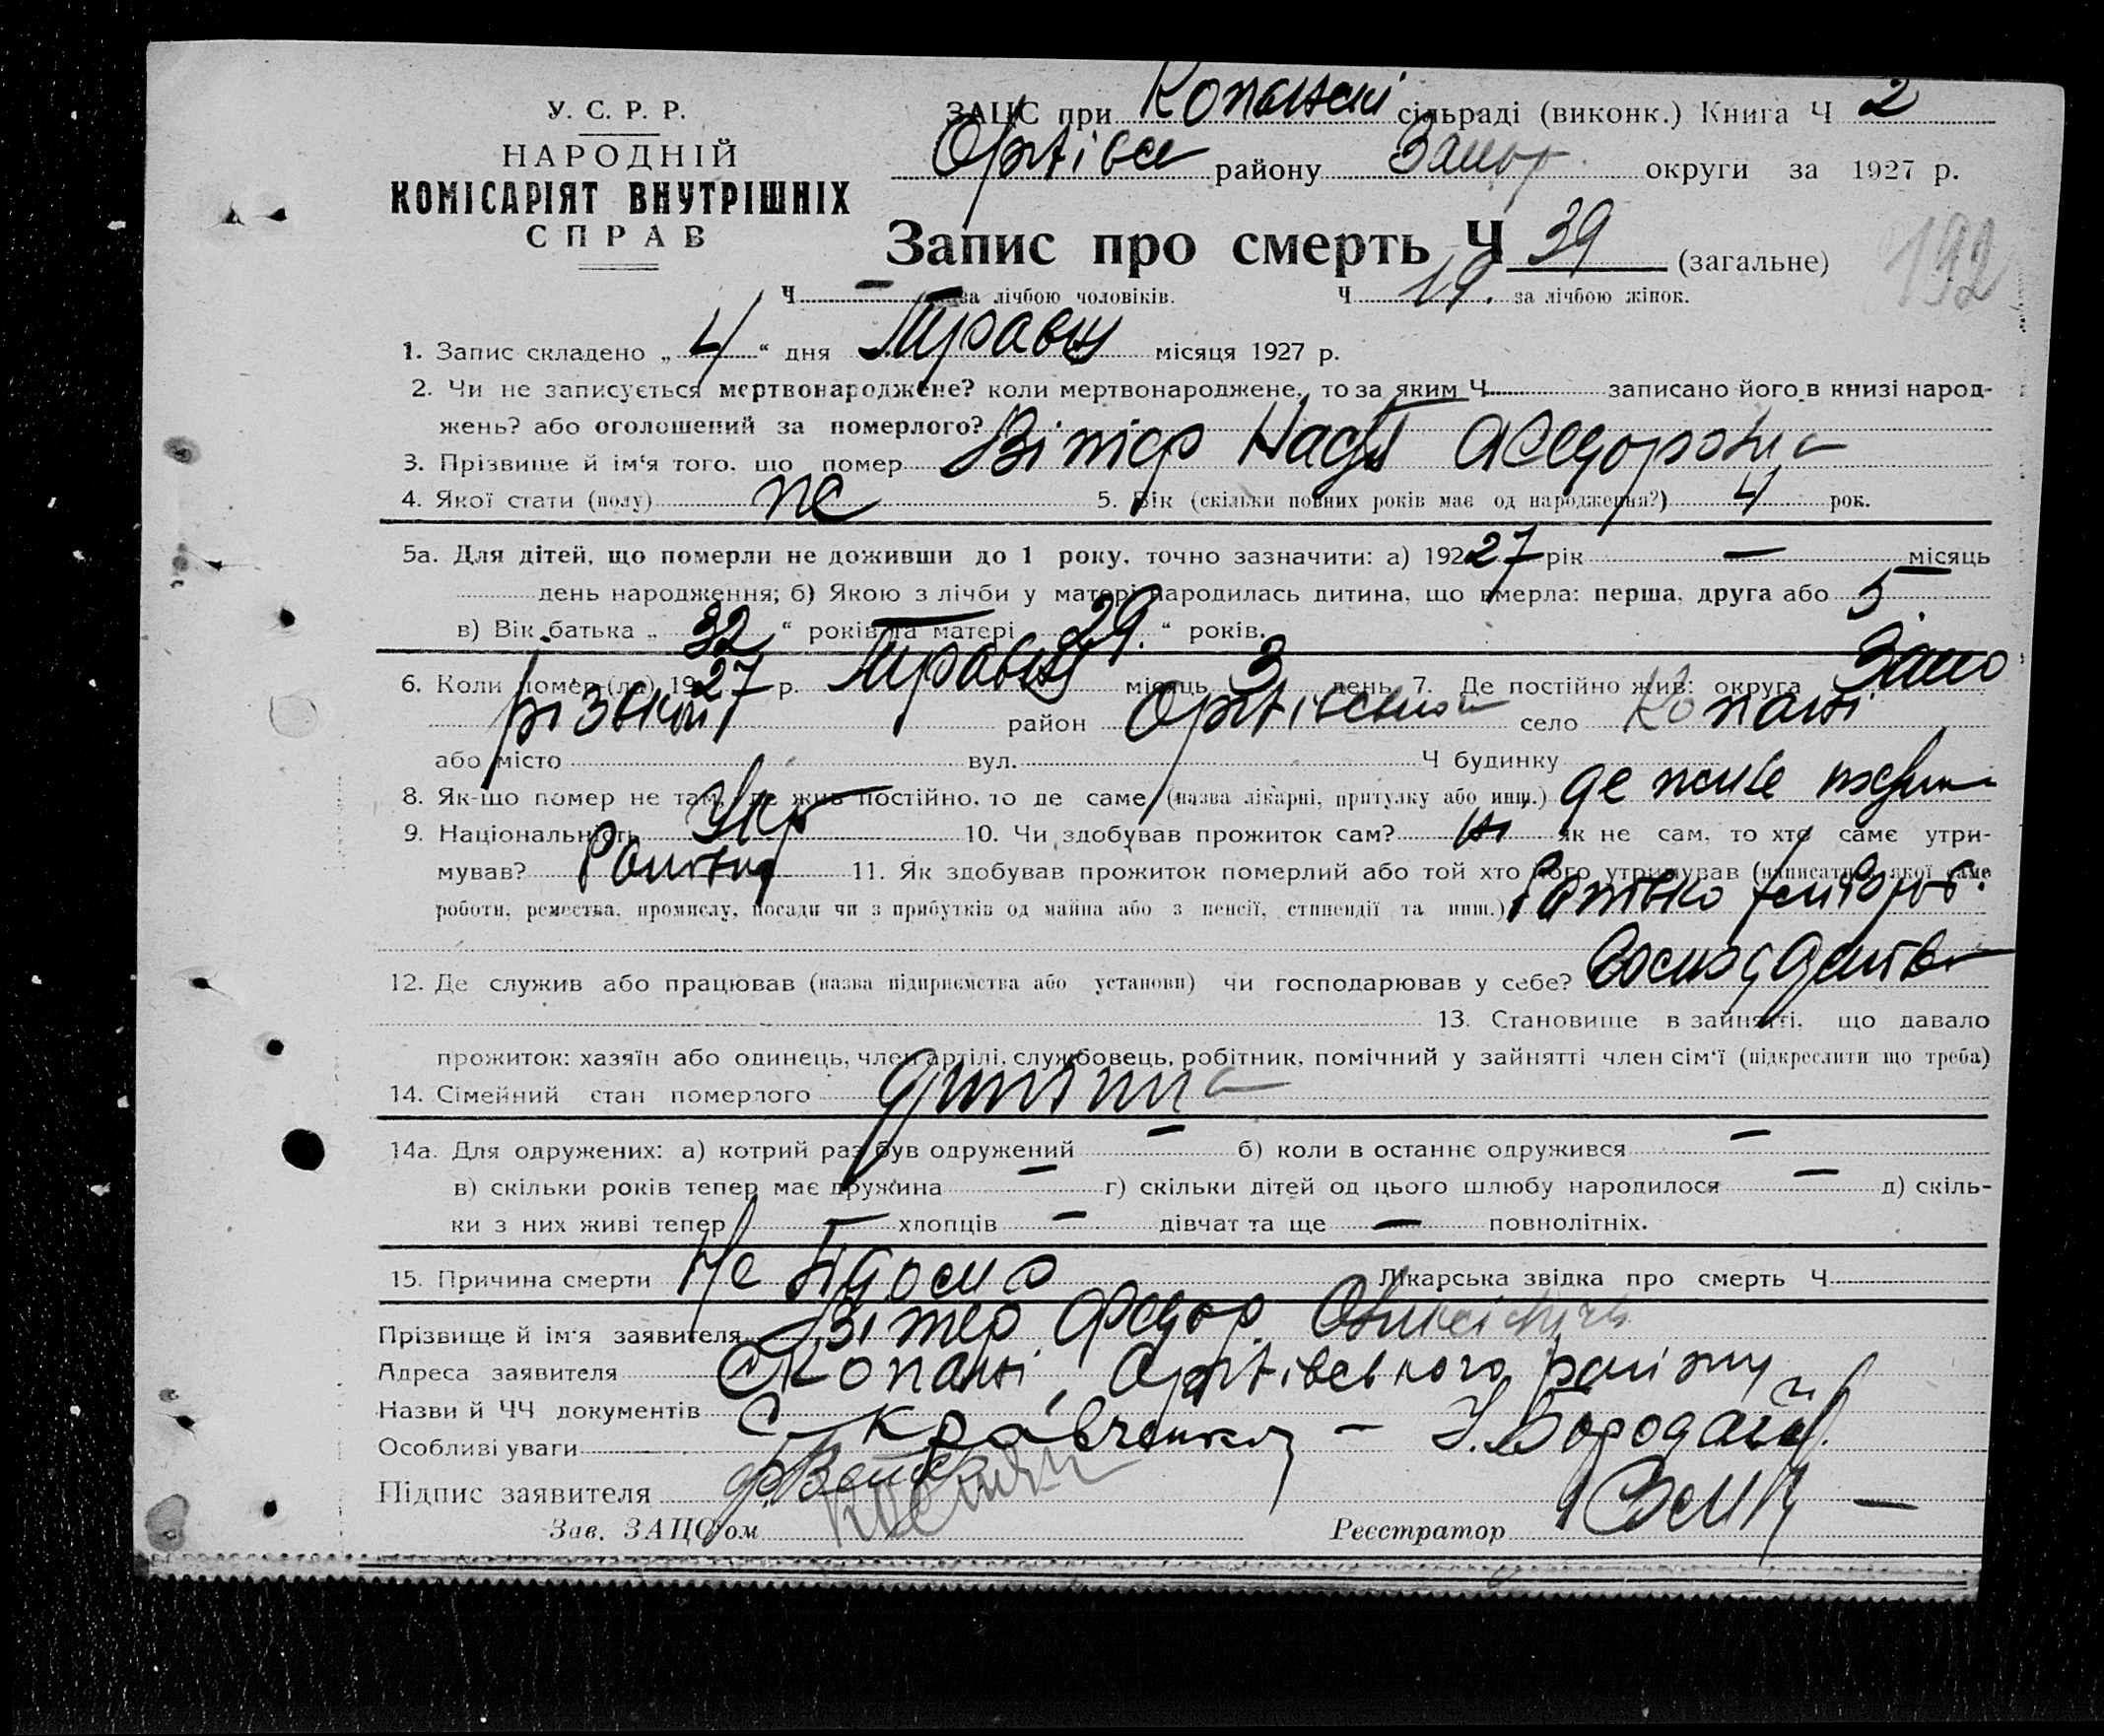 У. С. Р. Р.
НАРОДНІЙ
КОМІСАРІЯТ ВНУТРІШНІХ
СПРАВ
ЗАЦС при сільраді (виконк.) Книга Ч 2
району Запор округи за 1927 р.
Запис про смерть Ч 39 (загальне)
192
Ч — за лічбою чоловіків. Ч 19. за лічбою жінок.
1. Запис складено „ 4 “ дня Травня місяця 1927 р.
2. Чи не записується мертвонароджене? коли мертвонароджене, то за яким Ч записано його в книзі народ-
жень? або оголошений за померлого?
3. Прізвище й ім'я того, що помер Вітер Надя Федоровна
4. Якої стати (полу) 5. Вік (скільки повних років має од народження?) 4 рок.
5а. Для дітей, що померли не доживши до 1 року, точно зазначити: а) 192 27 рік — місяць
день народження; б) Якою з лічби у матері народилась дитина, що вмерла: перша, друга або 5.
в) Вік батька „ 32 “ років та матері 29. “ років.
6. Коли помер (ла) 19 27 р. Травня місяць 3 день 7. Де постійно жив: округа Запо
різський район село Копані
або місто вул. Ч будинку
8. Як-що помер не там, де жив постійно, то де саме (назва лікарні, притулку або инш.) де
9. Національність Укр 10. Чи здобував прожиток сам? ні як не сам, то хто саме утри-
мував? 11. Як здобував прожиток померлий або той хто його утримував (написати з якої саме
роботи, ремества, промислу, посади чи з прибутків од майна або з пенсії, стипендії та инш.) Батько
12. Де служив або працював (назва підприємства або установи) чи господарював у себе?
13. Становище в зайнятті, що давало
прожиток: хазяїн або одинець, член артілі, службовець, робітник, помічний у зайнятті член сім'ї (підкреслити що треба)
14. Сімейний стан померлого дитина
14а. Для одружених: а) котрий раз був одружений — б) коли в останнє одружився —
в) скільки років тепер має дружина — г) скільки дітей од цього шлюбу народилося — д) скіль-
ки з них живі тепер — хлопців — дівчат та ще — повнолітніх.
15. Причина смерти Не відомо Лікарська звідка про смерть Ч
Прізвище й ім'я заявителя Вітер Федор
Адреса заявителя с Копані Оріхівського району
Назви й ЧЧ документів С. Кравченко — У. Бородай
Особливі уваги
Підпис заявителя
Зав. ЗАЦС'ом Реєстратор